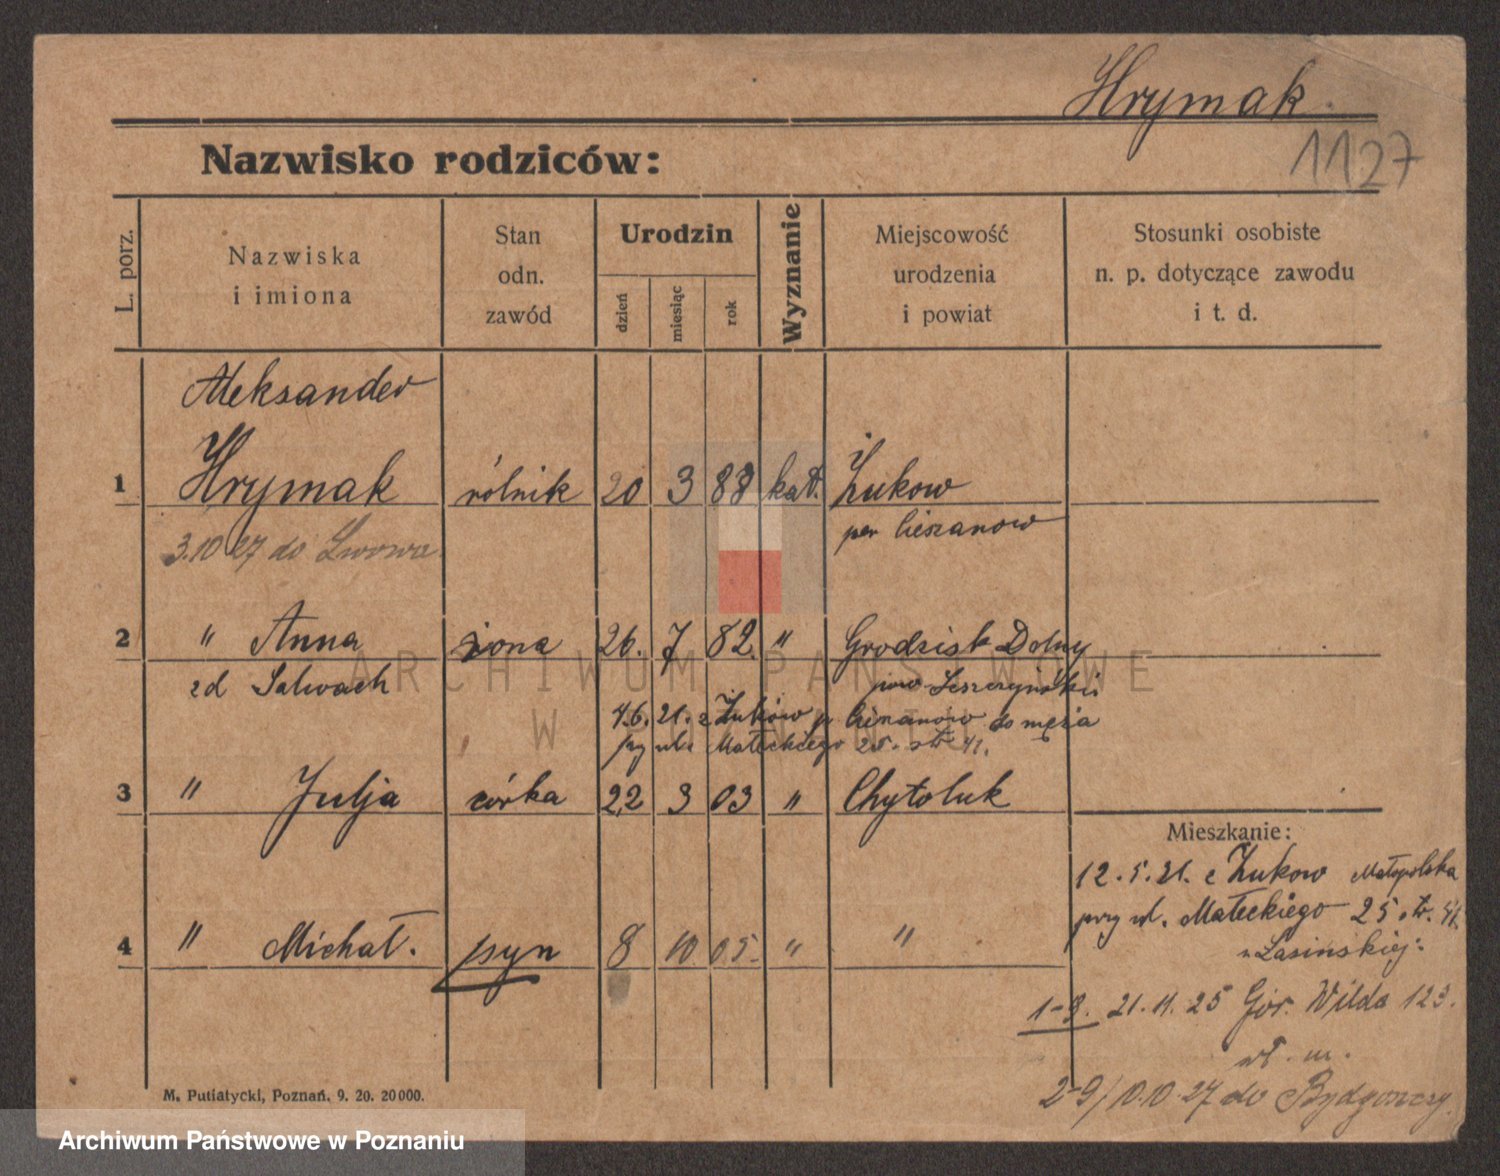 Hrymak
1127
Nazwisko rodziców:
L. porz.
Nazwiska
i imiona
Stan
odn.
zawód
Urodzin
dzień
miesiąc
rok
Wyznanie
Miejscowość
urodzenia
i powiat
Stosunki osobiste
n. p. dotyczące zawodu
i t. d.
Aleksander
1 Hrymak rólnik 20 3 88 kat. Żukow
3.10 27 do Lwowa
pow Cieszanow
2 " Anna żona 26. 7 82. " Grodzisk Dolny
zd Salwach
4.6. 21. z Żuków p Cieszanow do męża
przy ul. Małeckiego 25. str 41.
3 " Julja córka 22 3 03 " Chytoluk
Mieszkanie:
12.5.21. z Żukow Małopolska
przy ul. Małeckiego 25 str. 41.
u Lasinskiej:
4 " Michał. syn 8 10 05. " "
1-9. 21.11.25 Gór. Wilda 123.
wł. m.
2-9/10.10.27 do Bydgoszczy.
M. Putiatycki, Poznań. 9. 20. 20000.
ARCHIWUM PAŃSTWOWE
W POZNANIU
Archiwum Państwowe w Poznaniu